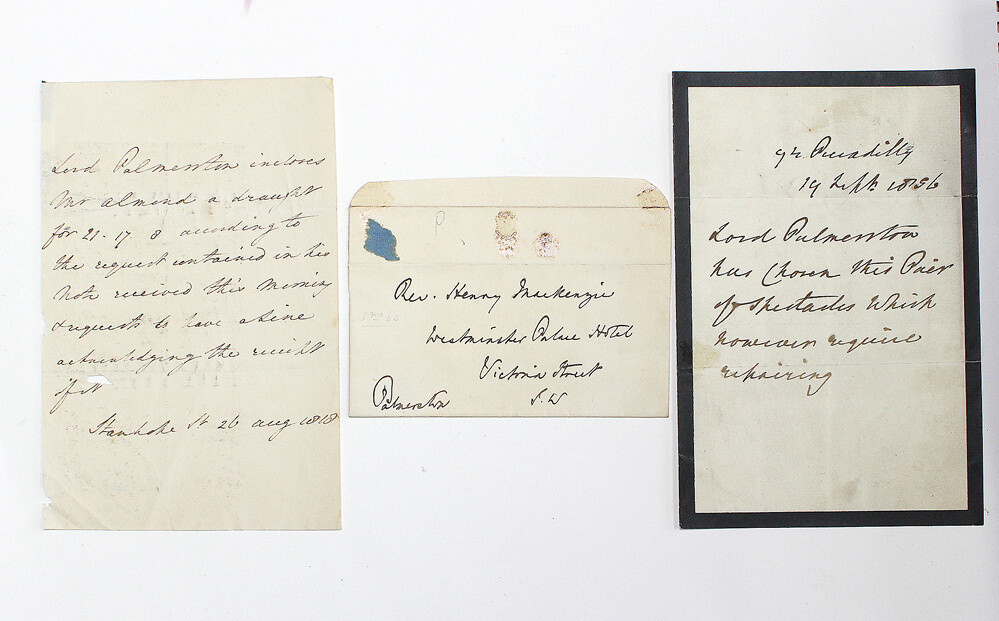 Lord Palmerston incloses
Mr Almond a draught
for 21-17 8 according to
the request contained in his
Note received this Morning
& requests to have a Line
acknowledging the receipt
of it
Stanhope St 26 Aug 1818
P
Rev. Henry Mackenzie
Westminster Palace Hotel
Victoria Street
S.W
Palmerston
94 Piccadilly
19 Septr 1856
Lord Palmerston
has Chosen this Pair
of Spectacles Which
however require
repairing